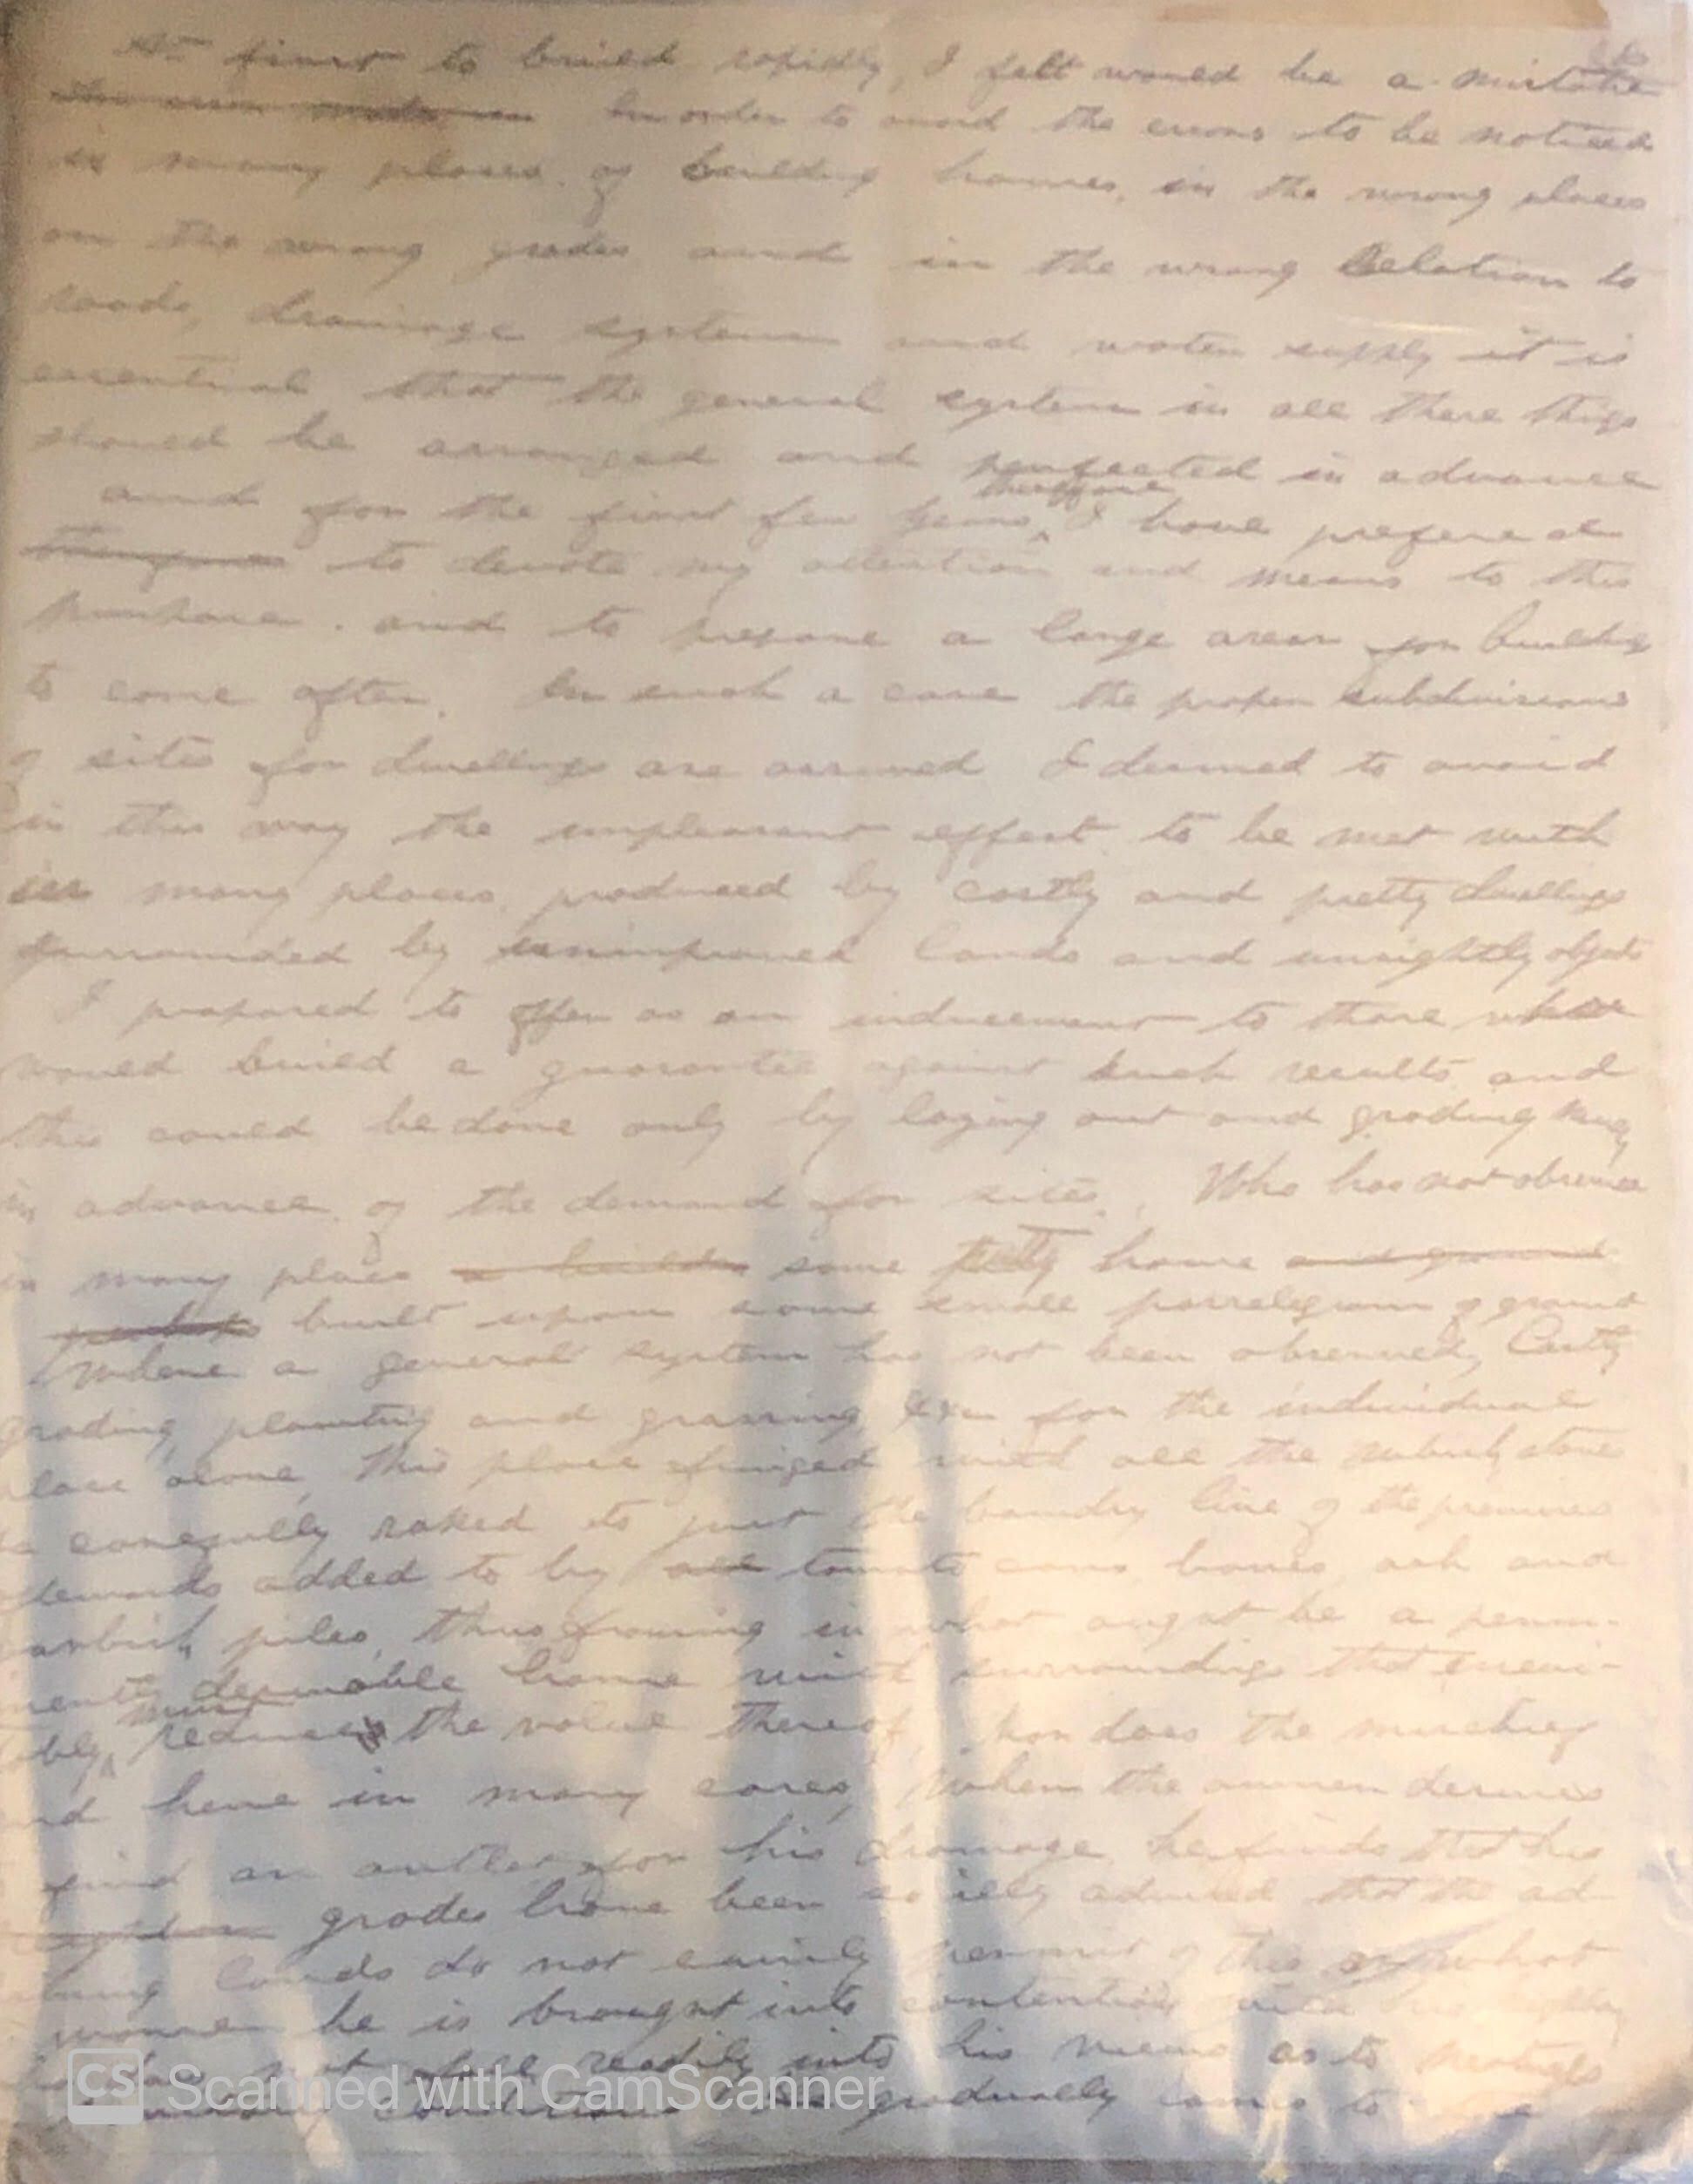 At first to build rapidly, I felt would be a mistake
In order to avoid the errors to be noticed
in many places of building homes, in the wrong places
on the wrong grades and in the wrong Relation to
roads, drainage systems and water supply it is
essential that the general system in all these things
should be arranged and perfected in advance
and for the first few years, therefore I have prefered
therefore to devote my attention and means to this
purpose. and to prepare a large area for building
to come after. In such a case the proper subdivisions
of sites for dwellings are assured I desired to avoid
in this way the unpleasant effect to be met with
in many places, produced by costly and pretty dwellings
surrounded by unimproved lands and unsightly objects
I proposed to offer as an inducement to those who
would build a guarantee against such results and
this could be done only by laying out and grading
in advance of the demand for sites. Who has not observed
in many places a some pretty home and ground
built upon some small parrelegram of ground
where a general system has not been observed, Costly
grading, planting and grassing for the individual
place alone, this place fringed with all the rubbish, stone
carefully raked to just the boundry line of the premises
added to by old tomato cans, bones, ash and
rubbish piles, thus framing in what ought be a perma-
nently desireable home with surroundings that
must reduce the value thereof. Nor does the mischief
end here in many cases, When the owner desires
find an outlet for his drainage he finds that his
grades have been so illy advised that the ad
lands do not easily permit of this or what
he is brought into contention with
not fall readily into his views as to
conditions he gradually comes to
CS Scanned with CamScanner